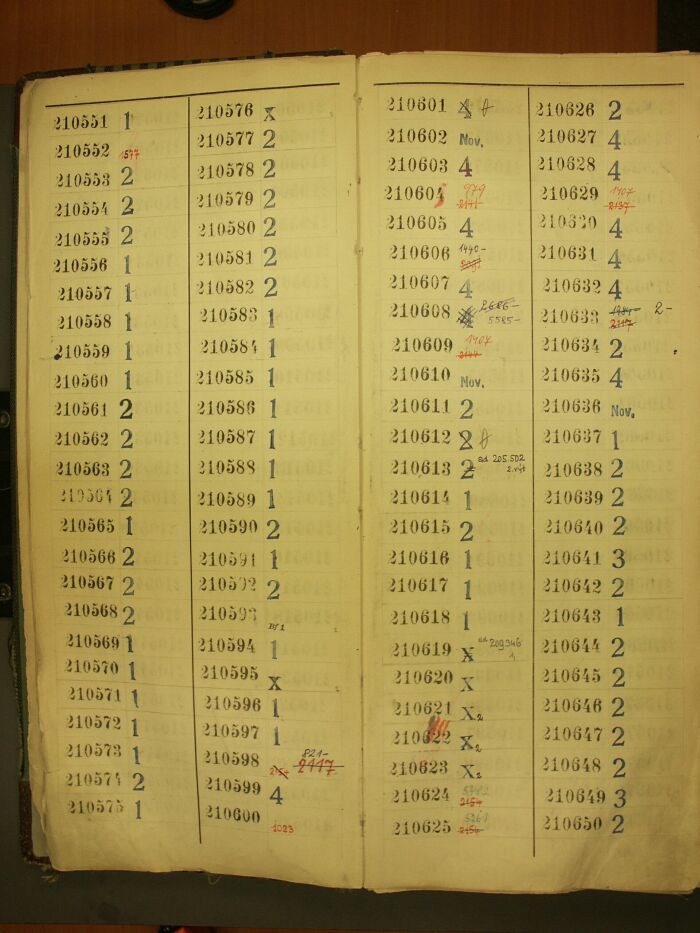 210551 1
210552 1577
210553 2
210554 2
210555 2
210556 1
210557 1
210558 1
210559 1
210560 1
210561 2
210562 2
210563 2
210564 2
210565 1
210566 2
210567 2
210568 2
210569 1
210570 1
210571 1
210572 1
210573 1
210574 2
210575 1
210576 x
210577 2
210578 2
210579 2
210580 2
210581 2
210582 2
210583 1
210584 1
210585 1
210586 1
210587 1
210588 1
210589 1
210590 2
210591 1
210592 2
210593
210594 1
210595 x
210596 1
210597 1
821-
210598 2154 2117
210599 4
210600 1023
210601 4
210602 Nov.
210603 4
210604 979
2141
210605 4
210606 1440-
210607 4
210608 4 2686-
5585-
210609 1407
2144
210610 Nov.
210611 2
210612 2
210613 2 ad 205.502
210614 1
210615 2
210616 1
210617 1
210618 1
210619 x ad 209346
1
210620 x
210621 x2
210622 x2
210623 x2
210624
2154
210625
2156
210626 2
210627 4
210628 4
210629 1407
2137
210630 4
210631 4
210632 4
210633 2-
2117
210634 2
210635 4
210636 Nov.
210637 1
210638 2
210639 2
210640 2
210641 3
210642 2
210643 1
210644 2
210645 2
210646 2
210647 2
210648 2
210649 3
210650 2